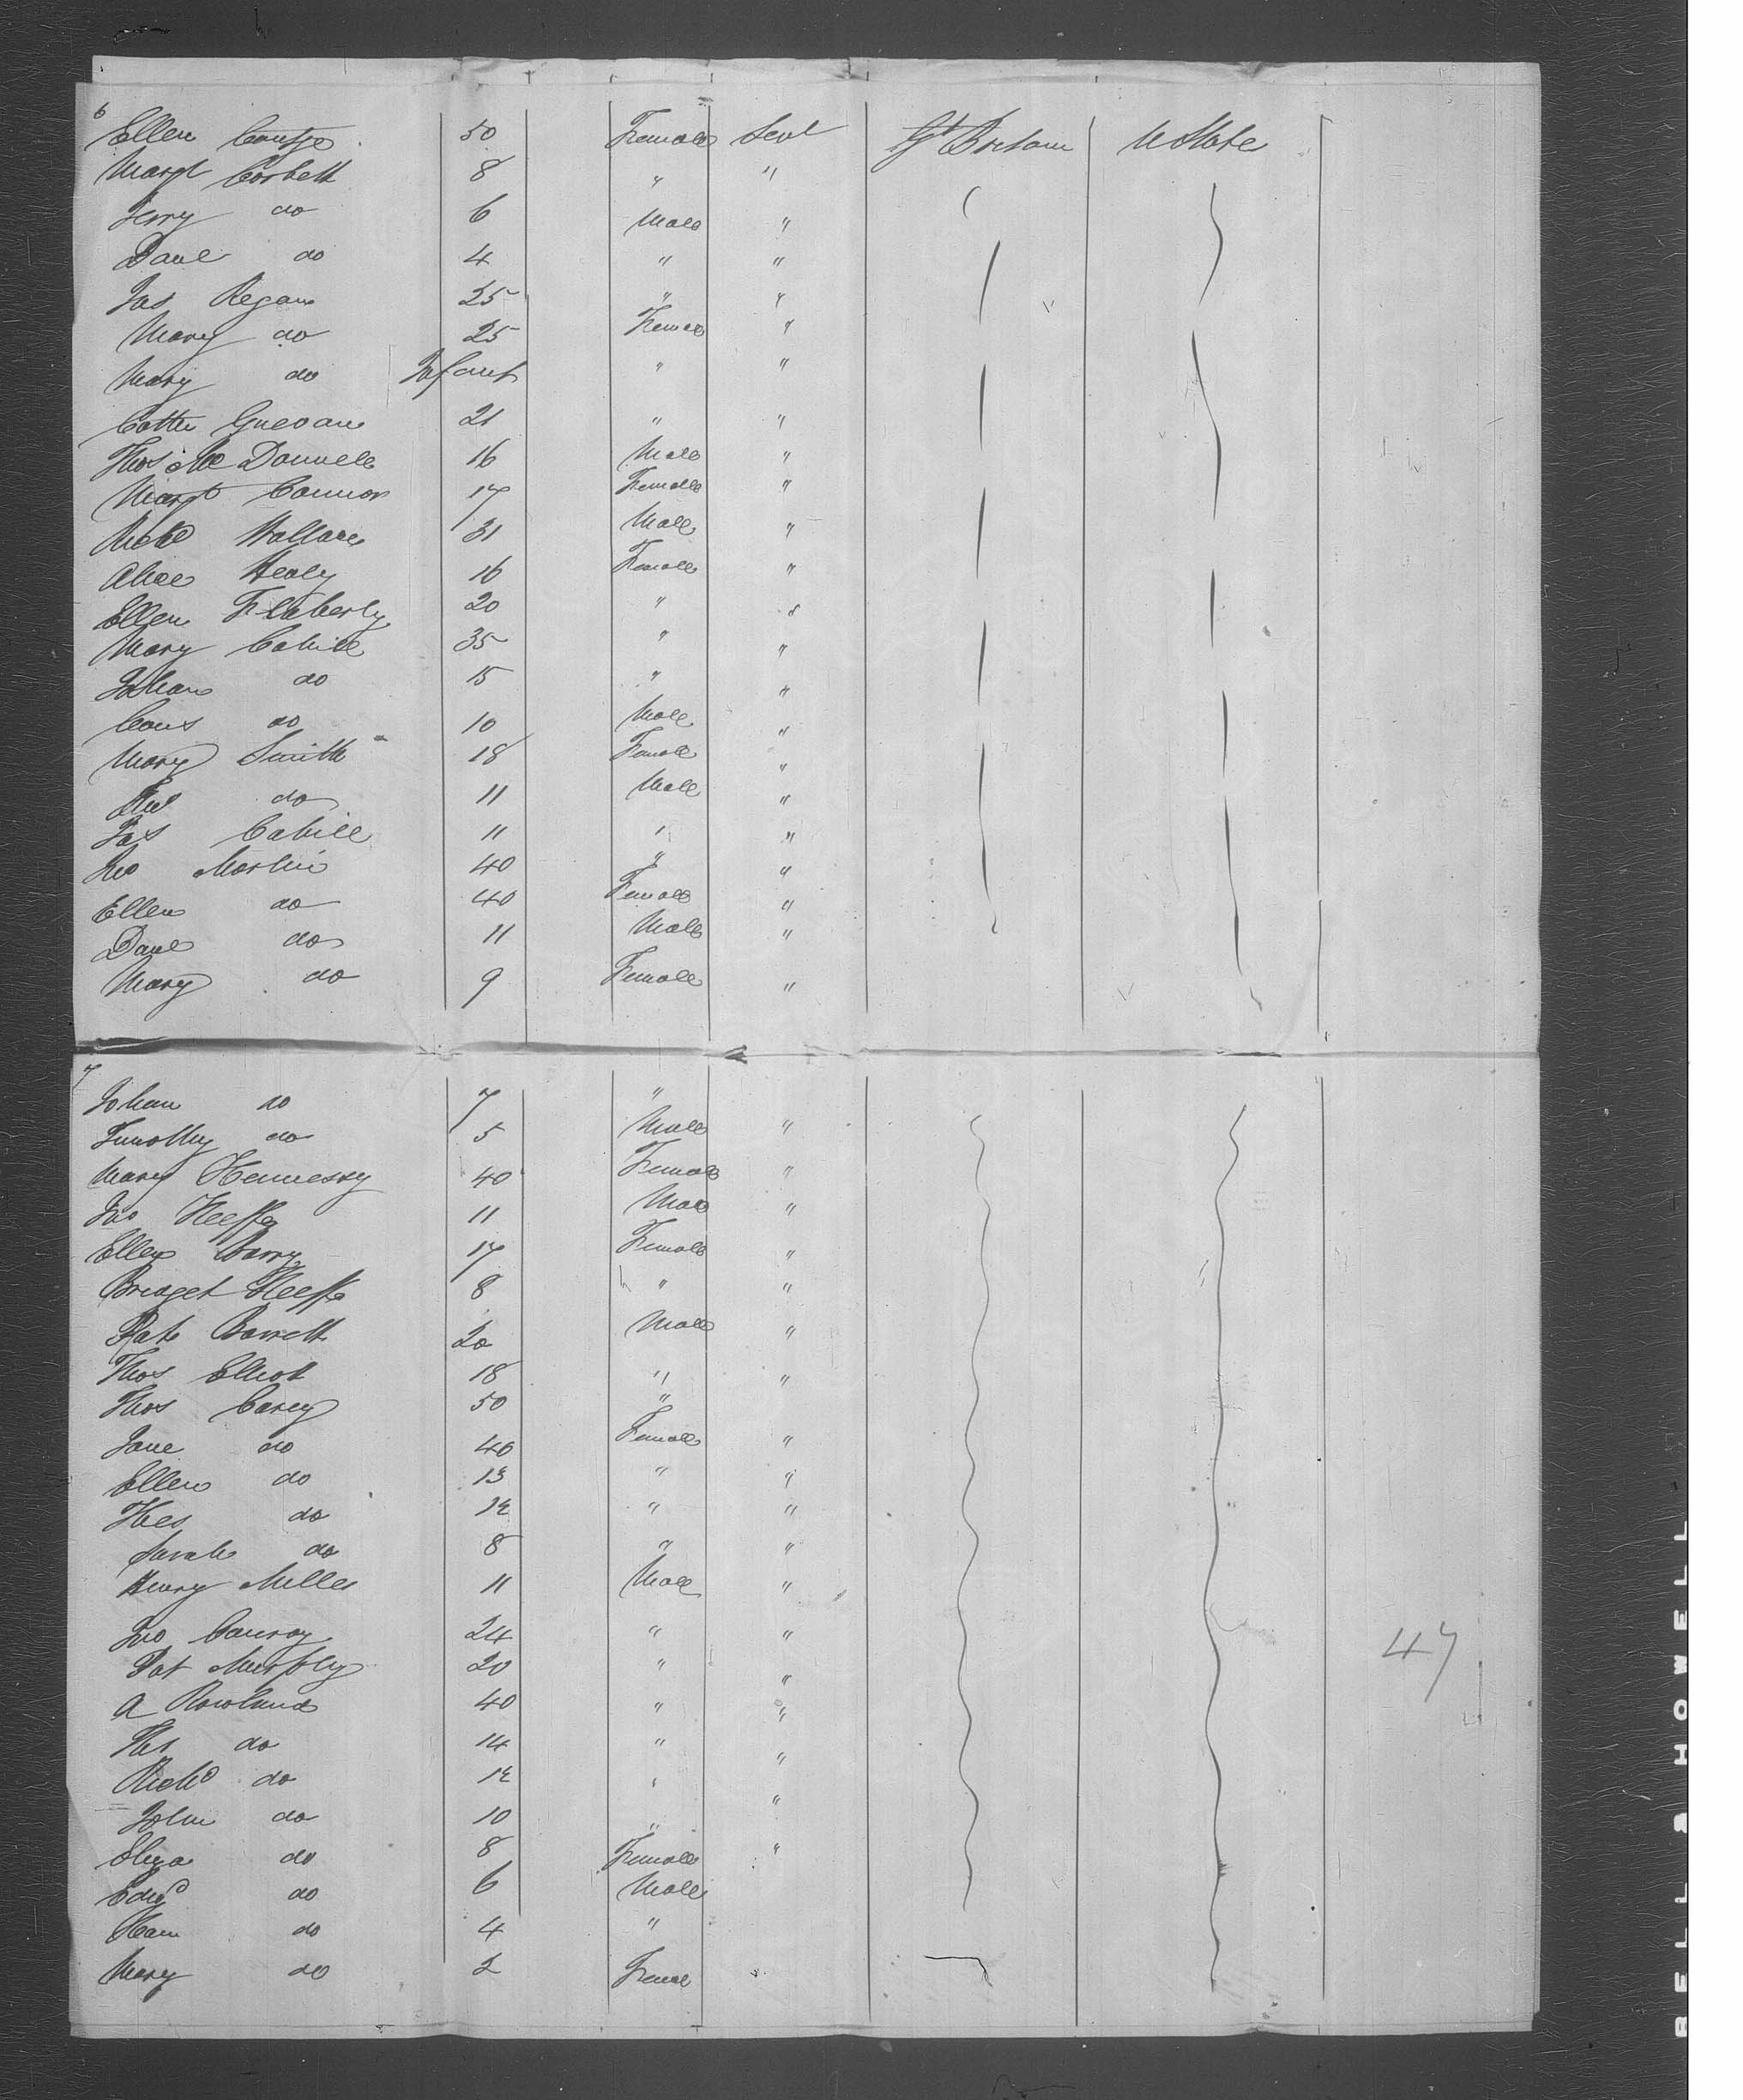 6
Ellen 50 Female Servt Gt Britain U State
Margt Corbett 8 " "
Jerry do 6 Male "
Danl do 4 " "
Jas Regan 25 " "
Mary do 25 Female "
Mary do Infant " "
Cathe 21 " "
Thos Mc Donnell 16 Male "
Margt Connor 17 Female "
Richd Wallace 31 Male "
Alice Healy 16 Female "
Ellen Flaherty 20 " "
Mary Cahill 35 " "
Johan do 15 " "
Cons do 10 Male "
Mary Smith 18 Female "
do 11 Male "
Jas Cahill 11 " "
Jno Martin 40 " "
Ellen do 40 Female "
Danl do 11 Male "
Mary do 9 Female "
7
Johan do 7 "
Timothy do 5 Male "
Mary Hennessy 40 Female "
Jno Keeffe 11 Male "
Ellen Barry 17 Female "
Bridget Keeffe 8 " "
Patk Barrett 20 Male "
Thos Elliott 18 " "
Thos Carey 50 "
Jane do 40 Female "
Ellen do 13 " "
do 12 " "
Sarah do 8 " "
Henry Miller 11 Male "
Jno Conroy 24 " "
Pat Murphy 20 " "
A Rowland 40 " "
do 14 " "
Richd do 12 " "
John do 10 "
Eliza do 8 Female "
Edwd do 6 Male
do 4 "
Mary do 2 Femal
47
BELL & HOWELL